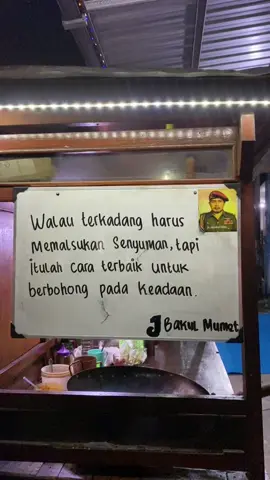 Walau terkadang harus
Memalsukan Senyuman, tapi
itulah cara terbaik untuk
berbohong pada keadaan.
J Bakul Mumet